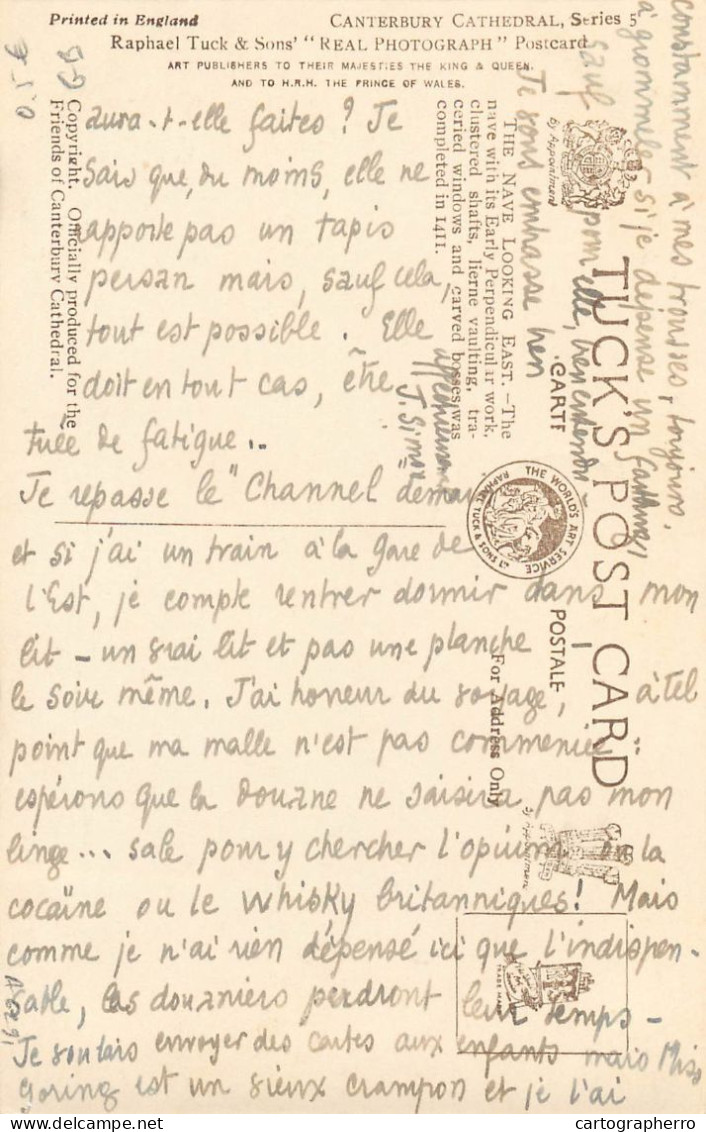 Printed in England
CANTERBURY CATHEDRAL, Series 5
Raphael Tuck & Sons' "REAL PHOTOGRAPH" Postcard
ART PUBLISHERS TO THEIR MAJESTIES THE KING & QUEEN.
AND TO H.R.H. THE PRINCE OF WALES.
Copyright. Officially produced for the
Friends of Canterbury Cathedral.
THE NAVE LOOKING EAST.—The
nave with its Early Perpendicular work,
clustered shafts, lierne vaulting, tra-
ceried windows and carved bosses was
completed in 1411.
TUCK'S POST CARD
CARTE POSTALE
For Address Only
by Appointment
THE WORLD'S ART SERVICE
RAPHAEL TUCK & SONS LTD
by Appointment
TRADE MARK
aura-t-elle faites ? Je
sais que, du moins, elle ne
apporte pas un tapis
persan mais, sauf cela,
tout est possible. Elle
doit en tout cas, être
tuée de fatigue..
Je repasse le "Channel demain
et si j'ai un train à la gare de
l'Est, je compte rentrer dormir dans mon
lit - un vrai lit et pas une planche
le soir même. J'ai horreur du voyage, à tel
point que ma malle n'est pas commencée
espérons que la douane ne saisira pas mon
linge... sale pour y chercher l'opium ou la
cocaïne ou le whisky britanniques! Mais
comme je n'ai rien dépensé ici que l'indispen-
sable, les douaniers perdront leur temps -
Je voulais envoyer des cartes aux enfants mais Miss
Goring est un vieux crampon et je l'ai
constamment à mes trousses, toujours
à grommeler si je dépense un farthing
sauf pour elle, bien entendu
Je vous embrasse bien
affectueusement
J. Simon